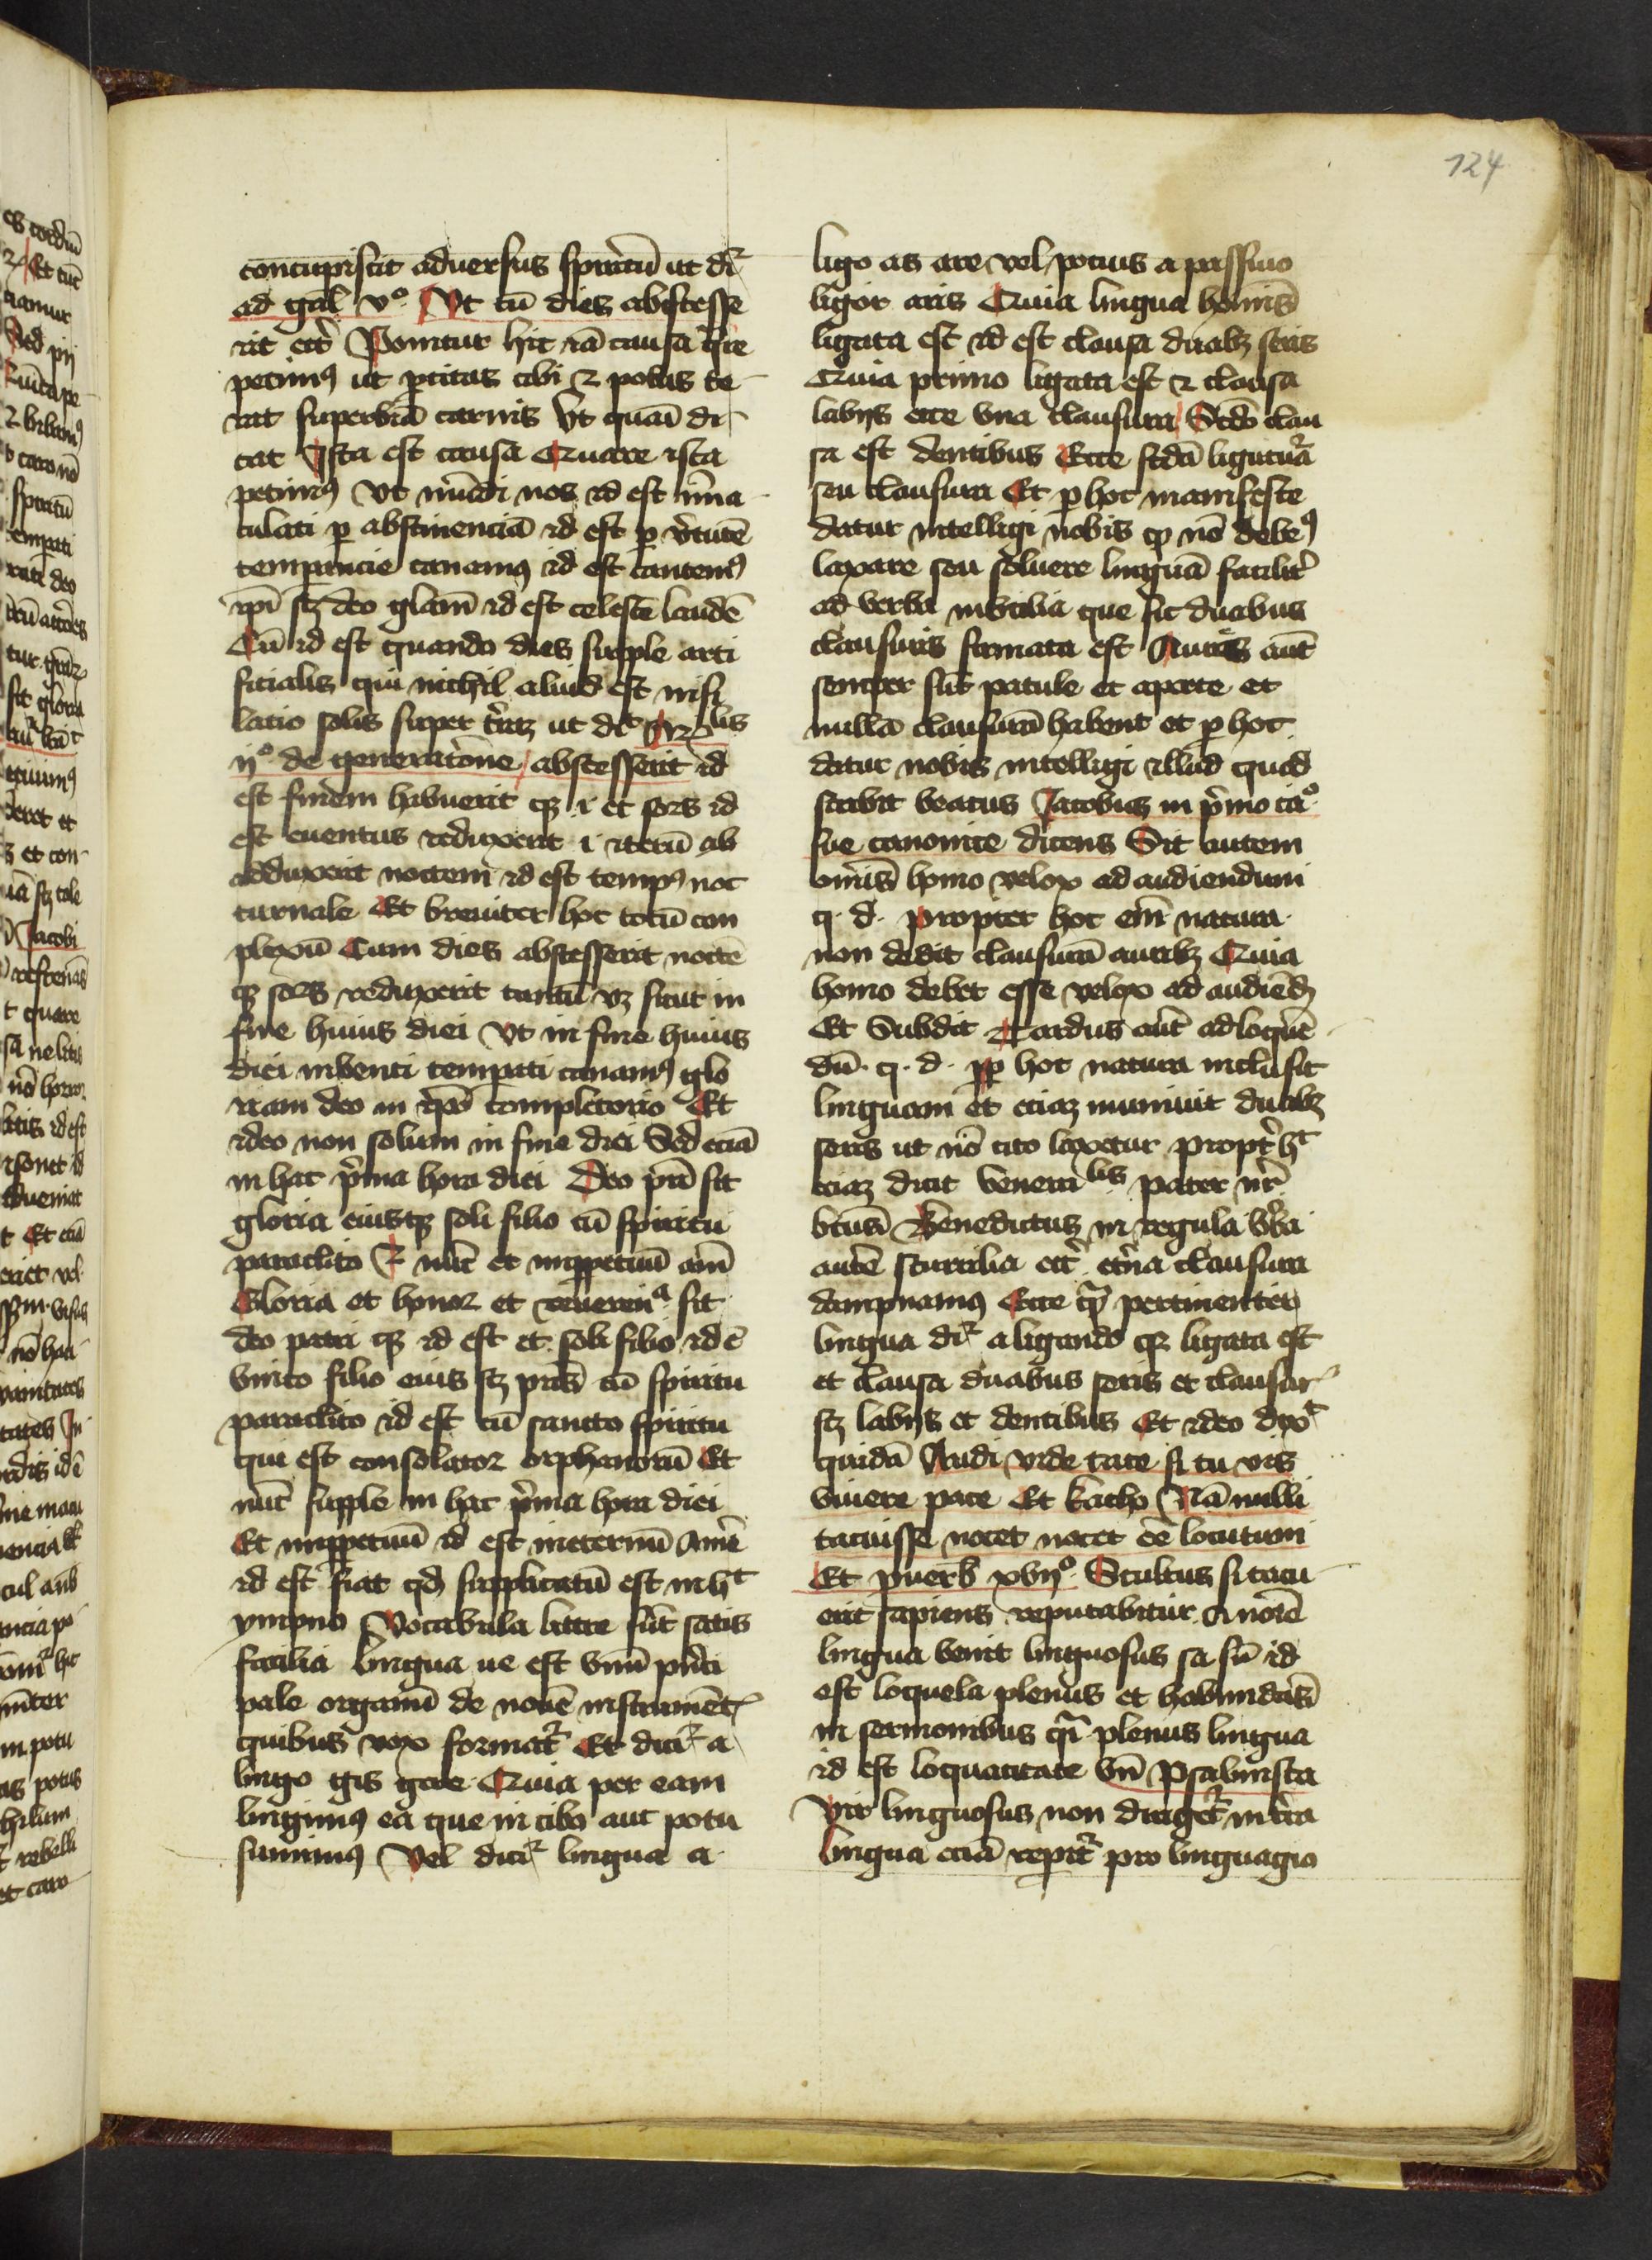 124
concupiscit adversus spiritū ut dr̄
ad gal̄ vº Ut cū dies abscesse
rit etc̄ Ponitur hic rā causa qͣre
petimꝰ ut ꝑcitas cibi ⁊ potus te
rat superbiā carnis Ut quasi di
cat Ista est causa Quare ista
petimꝰ Ut mūdi nos id est īma
culati ꝑ abstinenciā id est ꝑ v̓tutē
temꝑancie canamꝰ id est cantemꝰ
xp̄i sꝫ deo glam̄ id est celestē laudē
Cū id est quando dies supple arti
ficialis qui nichil aliud est nisi
latio solis super terrā ut dt Ar̄lis
ijº de generac̄one abscesserit id
est finem habuerit qꝫ .i. et sors id
est eventus reduxerit .i. iterū ab
adduxerit noctem id est tempꝰ noc
turnale Et breviter hoc totū con
plexū Cum dies abscesserit noctē
qꝫ sors reduxerit tantū vꝫ sicut in
fine huius diei Ut in fine huius
diei inventi temꝑati canamꝰ glo
riam deo in xp̄o completorio Et
ideo non solum in fine diei Sed eciā
in hac p̄ma hora diei Deo pr̄i sit
gloria eiusqꝫ soli filio cū spiritu
paraclito Et nūc et inꝑpetuū am̄
Gloria et honor et reverenᵃ sit
deo patri qꝫ id est et soli filio id ē
Unico filio eius sꝫ pr̄is cū spiritu
paraclito id est cū sancto spiritu
qui est consolator orphanorū Et
nūc supple in hac p̄ma hora diei
Et inꝑpetuū id est ineternū Amē
id est fiat qd̄ supplicatū est in hͨ
ympno Vocabula littre sūt satis
facilia Lingua ue est vnū pn̄ci
pale organū de novē instrumēt
quibus vox format᷑ Et dicit᷑ a
lingo gis gere Quia per eam
lingimꝰ ea que in cibo aut potu
sumimꝰ Vel dicit᷑ lingua a
ligo as are vel pocius a passivo
ligor aris Quia lingua hoīnis
ligata est id est clausa duabꝫ seris
Quia primo ligata est ⁊ clausa
labijs ecce vna clausura Sc̄do clau
sa est dentibus Ecce sc̄da ligatura
seu clausura Et ꝑ hoc manifeste
datur intelligi nobis qꝫ nō debeꝰ
laxare seu solvere linguā facilit̓
ad verba inutilia que sic duabus
clausuris firmata est Aures aūt
semper sūt patule et aperte et
nullā clausurā habent et ꝑ hoc
datur nobis intelligi illud quod
scribit beatus Jacobus in p̄mo caº
sue canonice dicens Sit autem
omīs homo velox ad audiendum
q. d. propter hoc em̄ natura
non dedit clausurā auribꝫ Quia
homo debet esse velox ad audiēdꝫ
Et Subdit Tardus aūt ad loquē
dū. q. d. ꝓpter hoc natura inclusit
linguam et eciaꝫ munivit duabꝫ
seris ut nō cito laxetur Propt̓ hͨ
eciaꝫ dicit venerabilis pater nr̄
btūs Benedictus in regula v̓ba
autē scurrilia etc̄ et̓na clausura
dampnamꝰ Ecce qͣ pertinenter
lingua dr̄ a ligando qꝫ ligata est
et clausa duabus seris et clausur
sꝫ labijs et dentibus Et ideo dixͭ
quidā Audi vide tace si tu vis
vivere pace Et Katho Nā nulli
tacuisse nocet nocet eē locutum
Et puerb̄ xvijº Stultus si tacu
erit sapiens reputabitur A noīe
lingua venit linguosus sa sū id
est loquela plenus et habundās
in sermonibus qͣi plenus lingua
id est loquacitate Vn̄ Psalmista
Vir linguosus non dirigetr̄ in t̓ra
Lingua eciā reperit᷑ pro linguagio